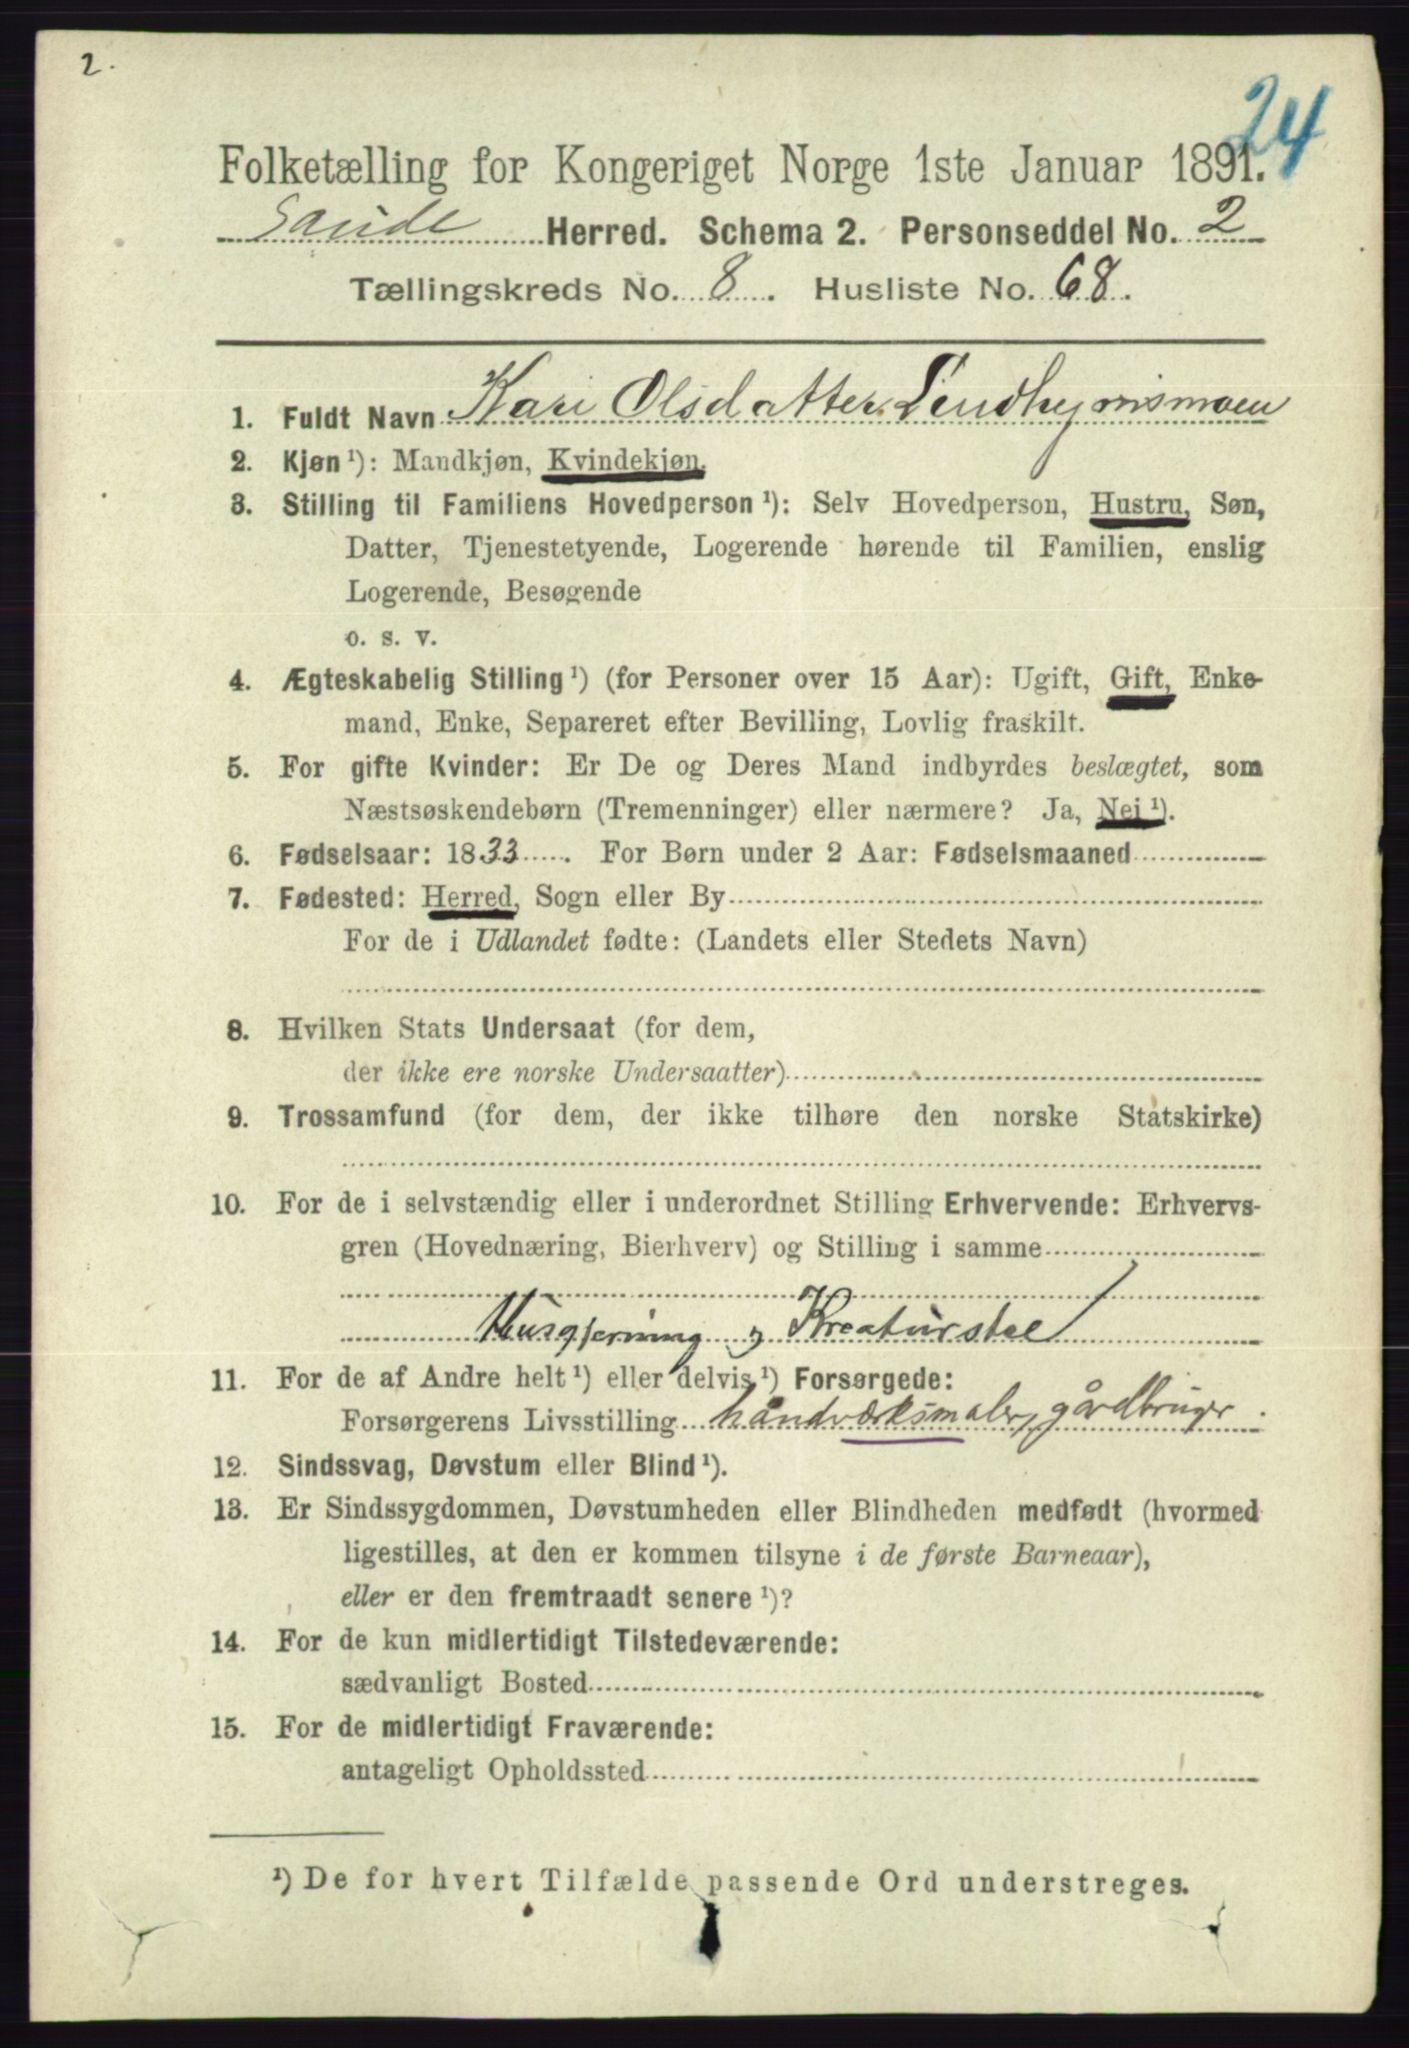 2.
24
Folketælling for Kongeriget Norge 1ste Januar 1891.
Saude Herred. Schema 2. Personseddel No. 2
Tællingskreds No. 8. Husliste No. 68.
1. Fuldt Navn Kari Olsdatter
2. Kjøn ¹): Mandkjøn, Kvindekjøn.
3. Stilling til Familiens Hovedperson ¹): Selv Hovedperson, Hustru, Søn,
Datter, Tjenestetyende, Logerende hørende til Familien, enslig
Logerende, Besøgende
o. s. v.
4. Ægteskabelig Stilling ¹) (for Personer over 15 Aar): Ugift, Gift, Enke-
mand, Enke, Separeret efter Bevilling, Lovlig fraskilt.
5. For gifte Kvinder: Er De og Deres Mand indbyrdes beslægtet, som
Næstsøskendebørn (Tremenninger) eller nærmere? Ja, Nei ¹).
6. Fødselsaar: 1833. For Børn under 2 Aar: Fødselsmaaned
7. Fødested: Herred, Sogn eller By
For de i Udlandet fødte: (Landets eller Stedets Navn)
8. Hvilken Stats Undersaat (for dem,
der ikke ere norske Undersaatter)
9. Trossamfund (for dem, der ikke tilhøre den norske Statskirke)
10. For de i selvstændig eller i underordnet Stilling Erhvervende: Erhvervs-
gren (Hovednæring, Bierhverv) og Stilling i samme
Husgjerning og Kreaturstel
11. For de af Andre helt ¹) eller delvis ¹) Forsørgede:
Forsørgerens Livsstilling håndværksmaler, gårdbruger.
12. Sindssvag, Døvstum eller Blind ¹).
13. Er Sindssygdommen, Døvstumheden eller Blindheden medfødt (hvormed
ligestilles, at den er kommen tilsyne i de første Barneaar),
eller er den fremtraadt senere ¹)?
14. For de kun midlertidigt Tilstedeværende:
sædvanligt Bosted
15. For de midlertidigt Fraværende:
antageligt Opholdssted
¹) De for hvert Tilfælde passende Ord understreges.